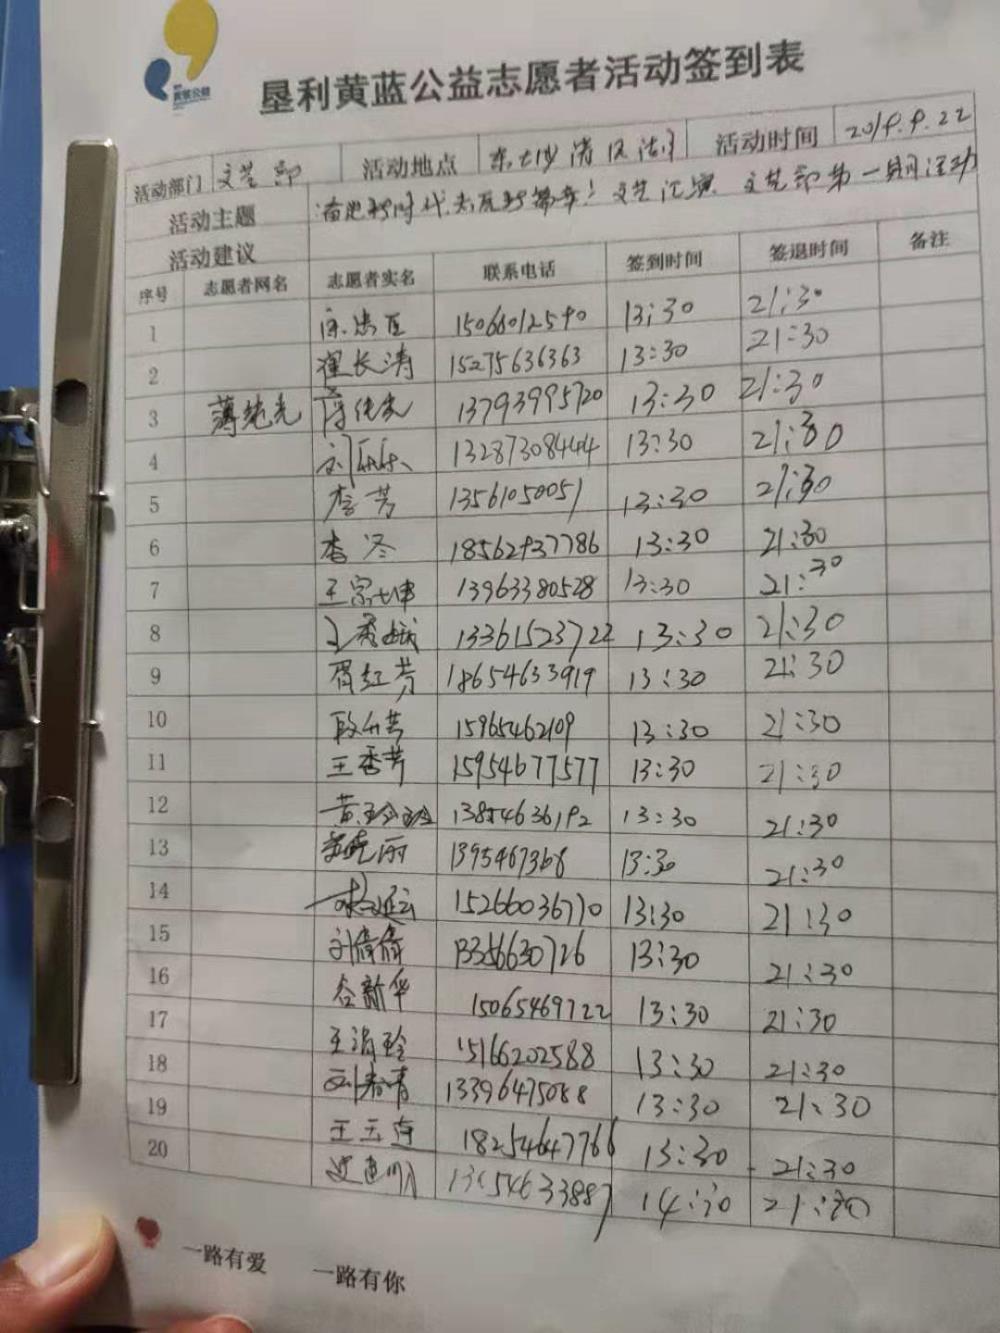 黄蓝公益
垦利黄蓝公益志愿者活动签到表
活动部门 文艺部 活动地点 活动时间 2019.9.22
活动主题 文艺汇演 文艺部第一期活动
活动建议
序号 志愿者网名 志愿者实名 联系电话 签到时间 签退时间 备注
1 15066012590 13:30 21:30
2 翟长涛 15275636363 13:30 21:30
3 薄纯光 13793995720 13:30 21:30
4 13287308444 13:30 21:30
5 李芳 13561050051 13:30 21:30
6 李冬 18562937786 13:30 21:30
7 王宗坤 13963380528 13:30 21:30
8 13361523722 13:30 21:30
9 胥红芳 18654633919 13:30 21:30
10 15965462109 13:30 21:30
11 王香芳 15954677577 13:30 21:30
12 黄玲玲 13854636192 13:30 21:30
13 1395467368 13:30 21:30
14 15266036770 13:30 21:30
15 刘倩倩 13356630726 13:30 21:30
16 谷新华 15065469722 13:30 21:30
17 王海玲 15166202588 13:30 21:30
18 刘春青 13396475088 13:30 21:30
19 王玉莲 18254647766 13:30 21:30
20 14:30 21:30
一路有爱 一路有你